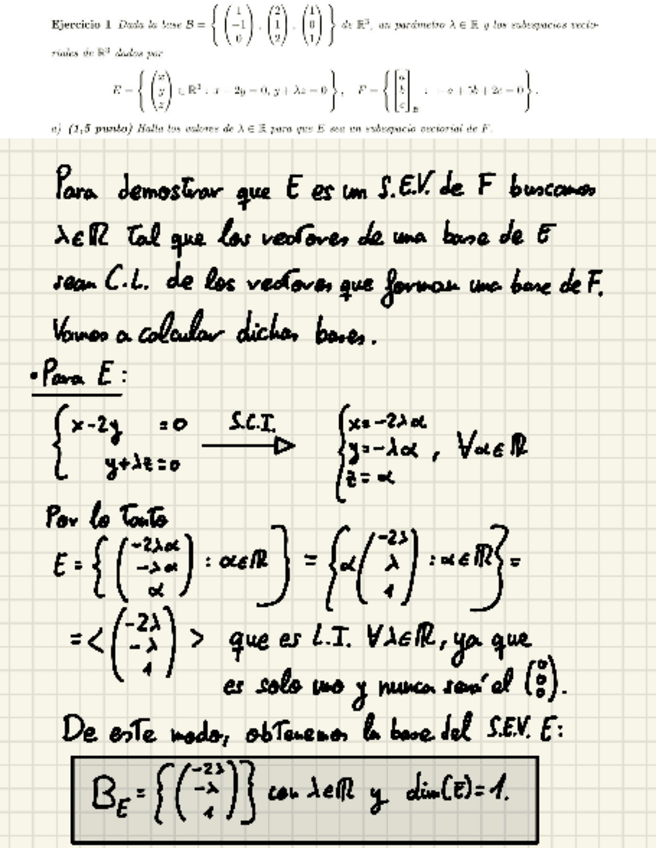 Ejercicio 1 Dada la base B = { (1 -1 0), (2 1 2), (1 0 1) } de ℝ³, un parámetro λ ∈ ℝ y los subespacios vecto-
riales de ℝ³ dados por
E = { (x y z) ∈ ℝ³ : x − 2y = 0, y + λz = 0 }, F = { [a b c]_B : −a + 5b + 2c = 0 }.
a) (1,5 punto) Halla los valores de λ ∈ ℝ para que E sea un subespacio vectorial de F.
Para demostrar que E es un S.E.V. de F buscamos
λ∈ℝ tal que los vectores de una base de E
sean C.L. de los vectores que forman una base de F.
Vamos a calcular dichas bases.
• Para E:
{ x-2y =0 S.C.I. { x=-2λα
y+λz=0 y=-λα, ∀α∈ℝ
z=α
Por lo tanto
E = { (-2λα -λα α) : α∈ℝ } = { α (-2λ λ 1) : α∈ℝ } =
= < (-2λ -λ 1) > que es L.I. ∀λ∈ℝ, ya que
es solo uno y nunca será el (0 0 0).
De este modo, obtenemos la base del S.E.V. E:
B_E = { (-2λ -λ 1) } con λ∈ℝ y dim(E)=1.